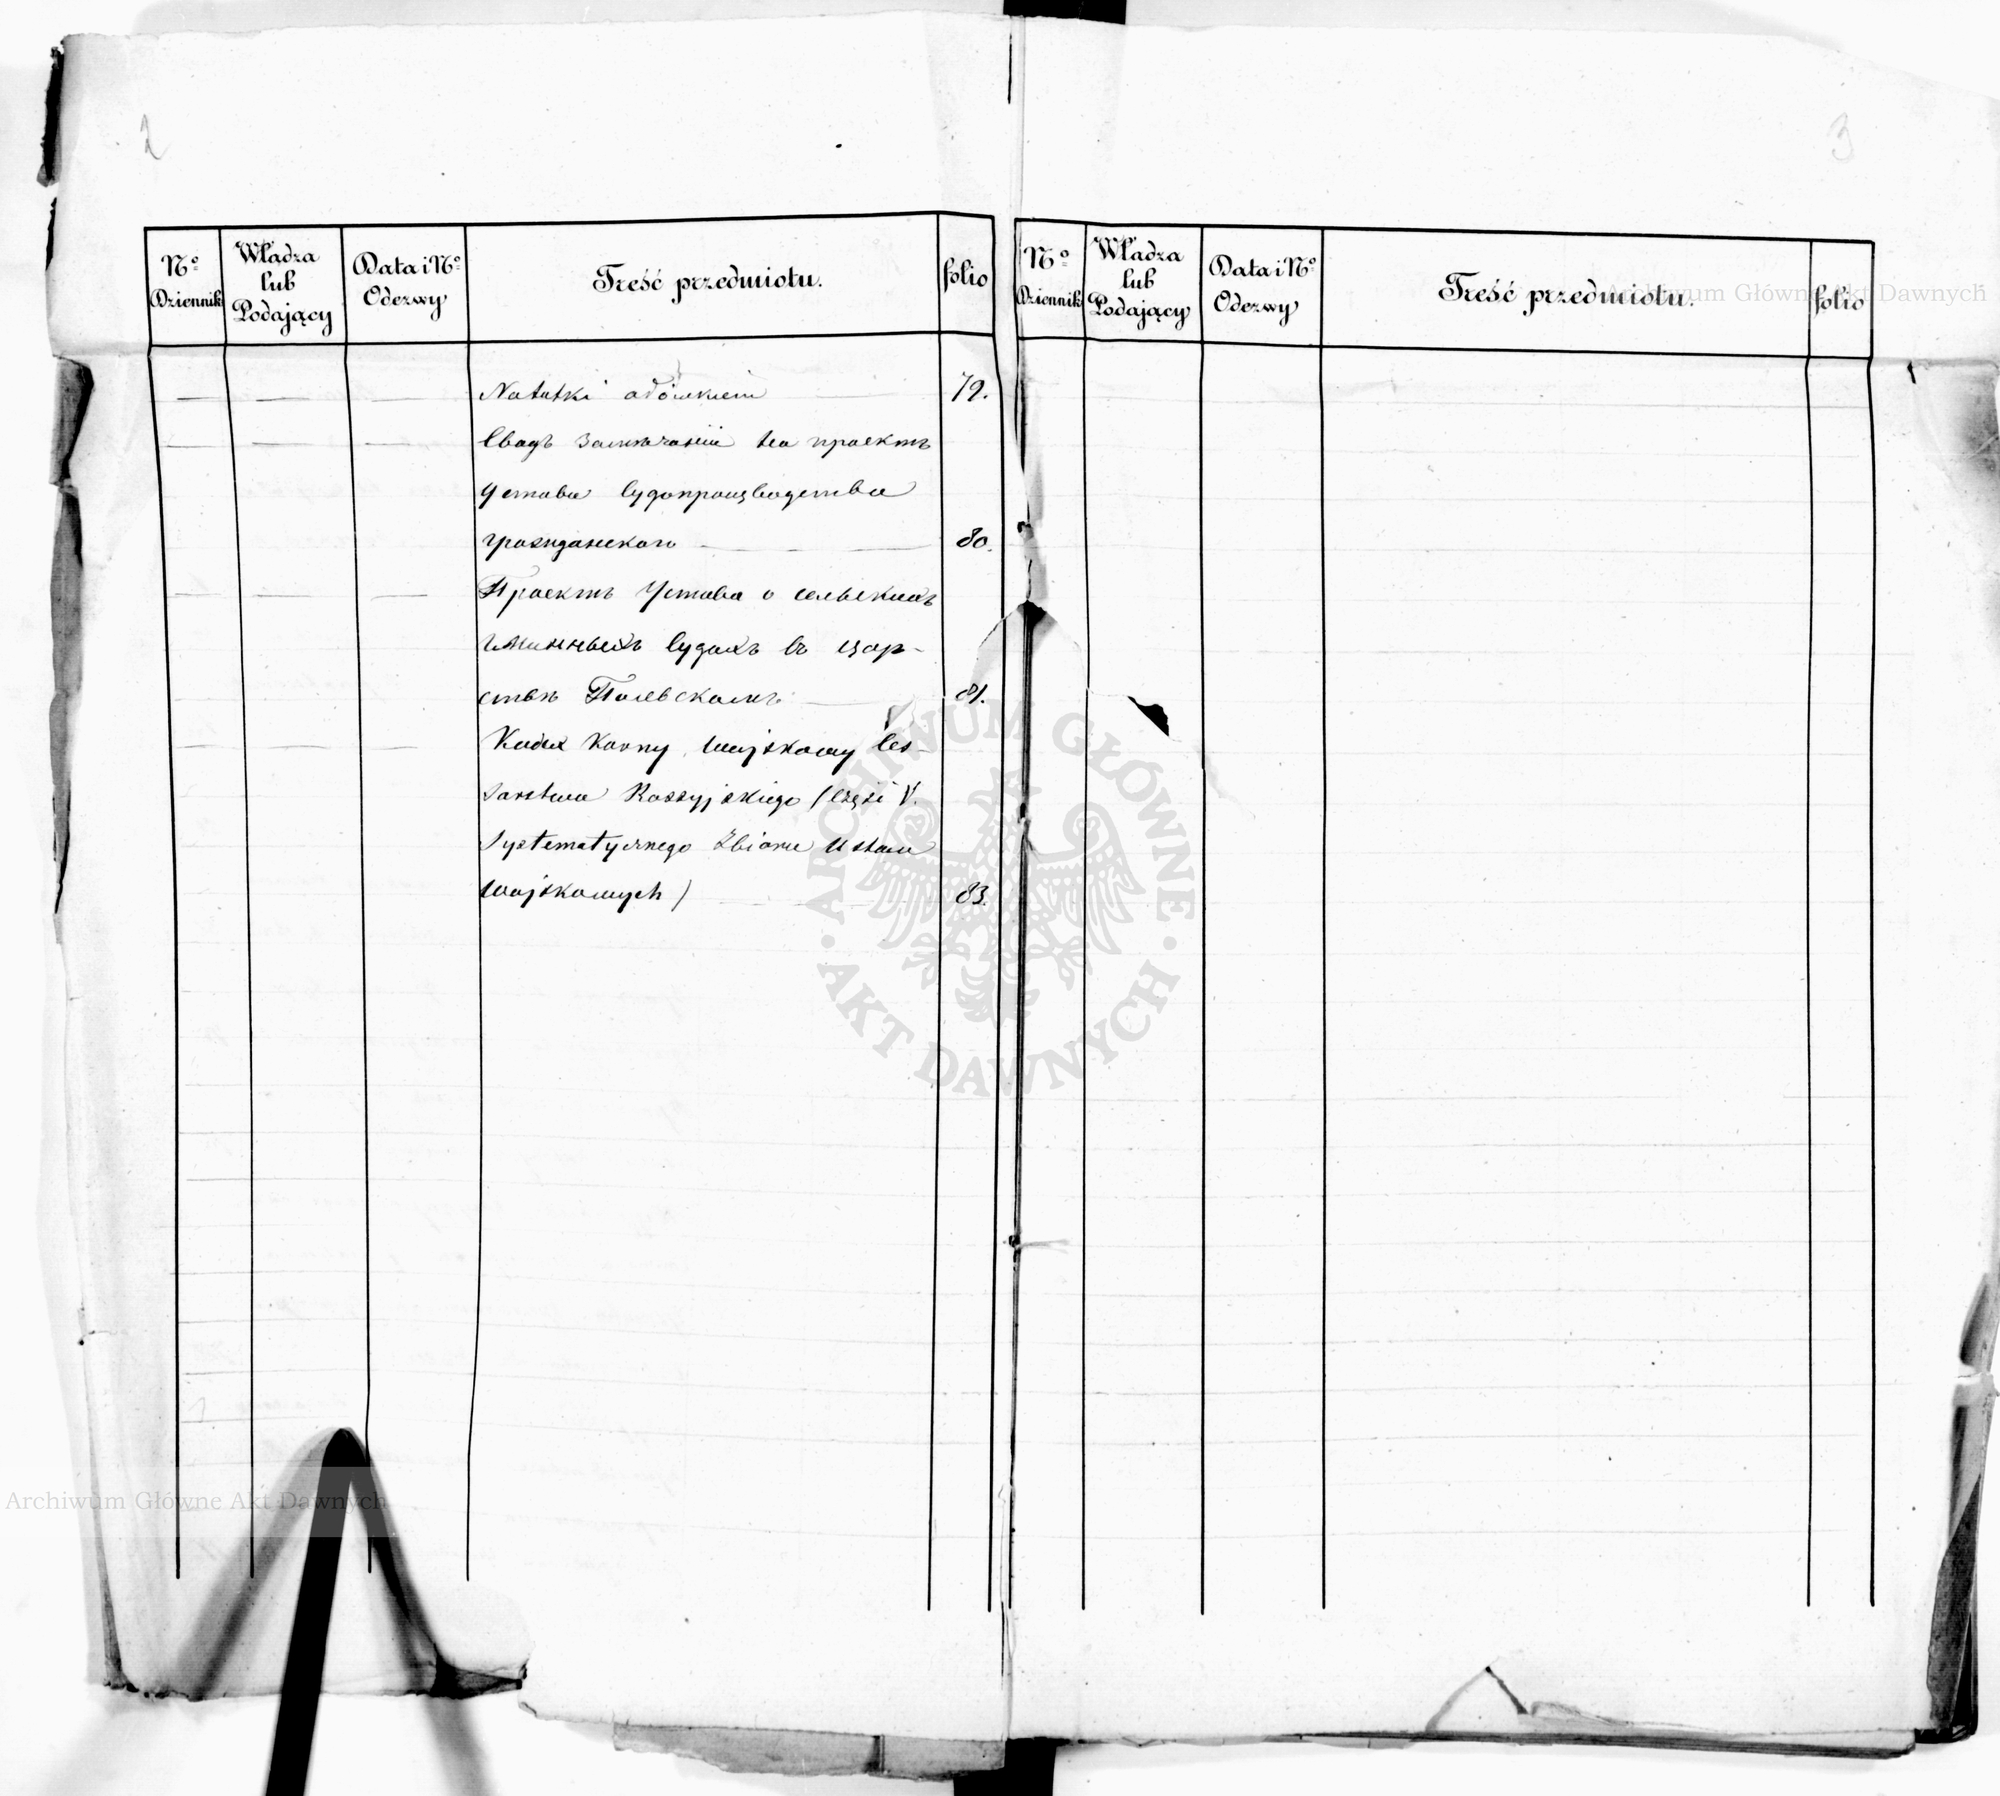 2
3
Nº Dziennik
Władza lub Podający
Data i Nº Odezwy
Treść przedmiotu.
folio
Nº Dziennik
Władza lub Podający
Data i Nº Odezwy
Treść przedmiotu.
folio
Notatki ołówkiem 79.
Сводъ замѣчаній на проектъ
Устава судопроизводства
гражданскаго 80.
Проектъ Устава о сельскихъ
гминныхъ судахъ въ Цар-
ствѣ Польскомъ 81.
Kodex Karny Wojskowy Ces-
sarstwa Rossyjskiego (Części V.
Systematycznego Zbioru Ustaw
Wojskowych) 83.
ARCHIWUM GŁÓWNE
AKT DAWNYCH
Archiwum Główne Akt Dawnych
Archiwum Główne Akt Dawnych